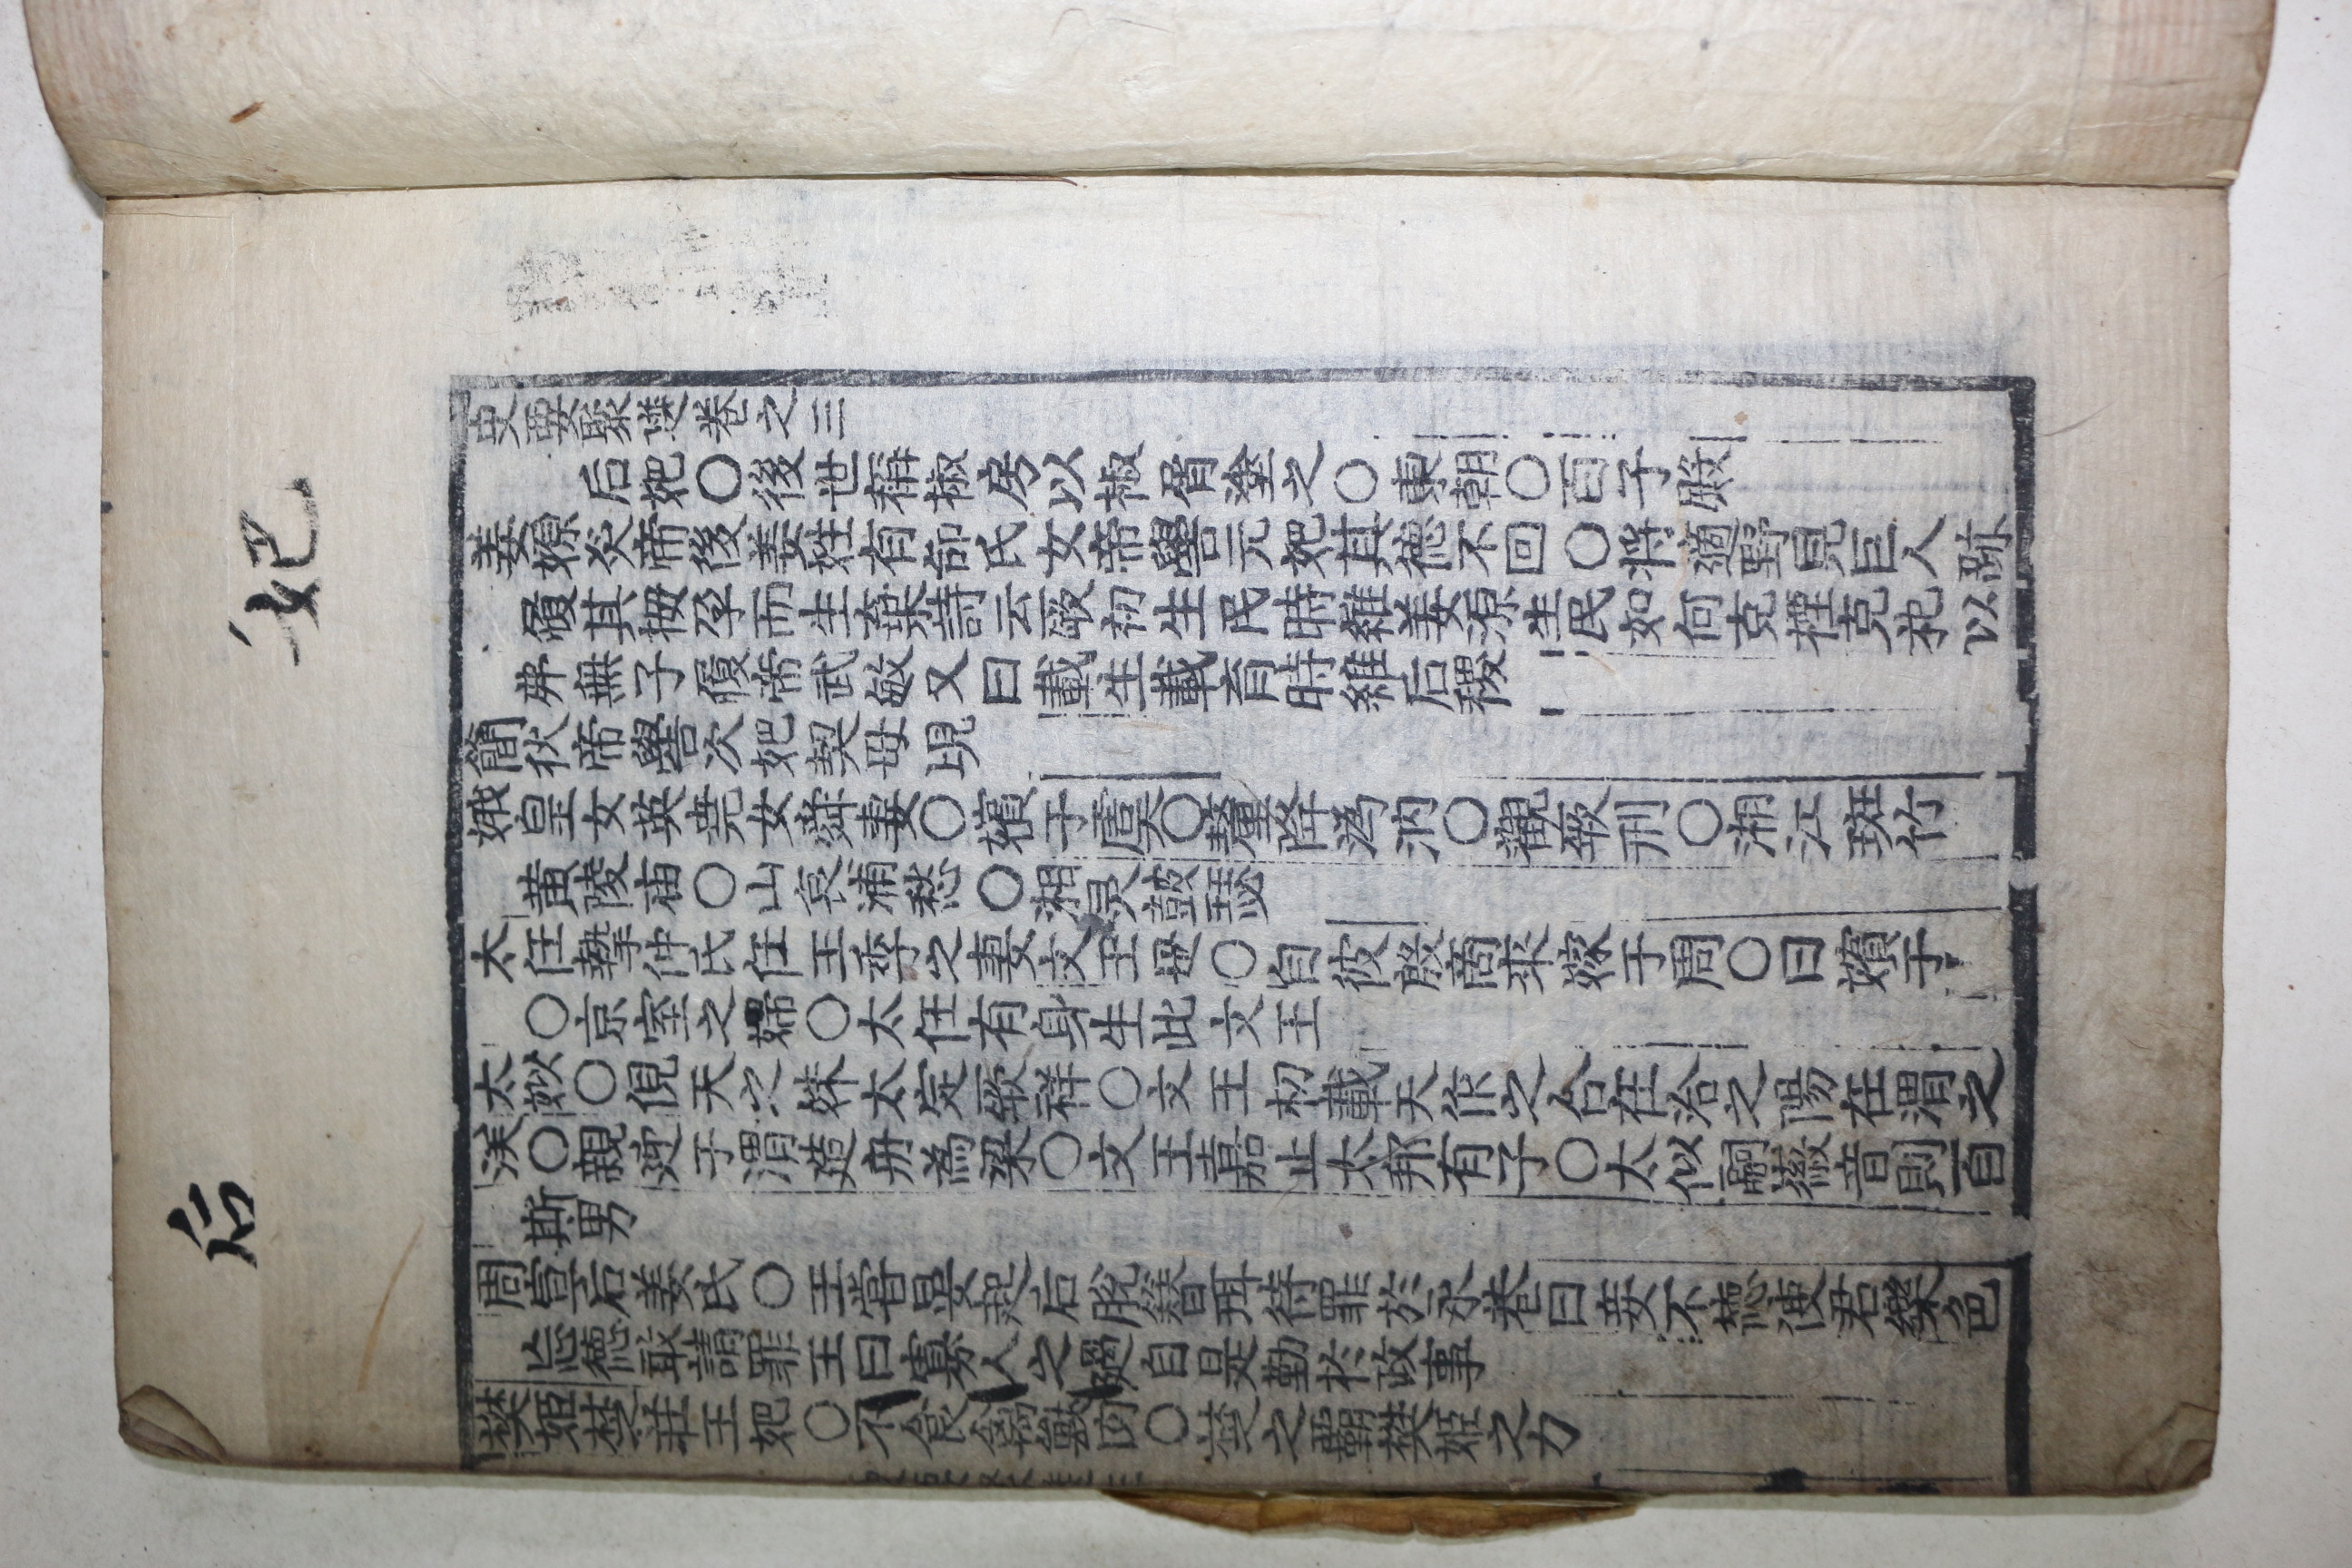 后妃
史要聚選卷之三
后妃○後世稱椒房以椒屑塗之○東朝○百子殿
姜嫄炎帝後姜姓有邰氏女帝嚳元妃其德不回○將適野見巨人跡
履其拇孕而生棄詩云厥初生民時維姜源生民如何克禋克祀以
弗無子履帝武敏又曰載生載育時維后稷
簡狄帝嚳次妃契母見上
娥皇女英堯女舜妻○嬪于虞○釐降溈汭○觀厥刑○湘江斑竹
黃陵庙○山哀浦愁○湘灵鼓瑟
太任摯仲氏任王季之妻文王母○自彼殷商來嫁于周○曰嬪于
○京室之婦○太任有身生此文王
太姒○俔天之妹太定厥祥○文王初載天作之合在洽之陽在渭之
涘○親迎于渭造舟爲梁○文王嘉止大邦有子○太姒嗣徽音則百
斯男
周宣后姜氏○王嘗晏起后脫簪珥待罪於永巷曰妾不德使君樂色
忘德敢請罪王曰寡人之愆自是勤於政事
樊姬楚莊王妃○不食禽獸肉○楚之覇樊姬之力